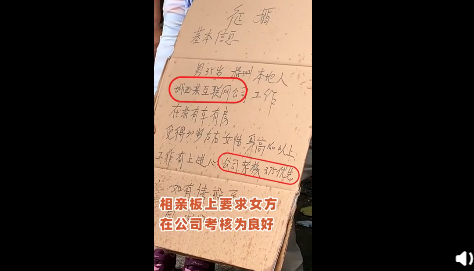 征婚
基本信息
男35岁 杭州本地人
州西某互联网公司工作
在杭有车有房
觅得30岁左右女性 身高160以上
工作有上进心 公司考核375优先
如有
相亲板上要求女方
在公司考核为良好